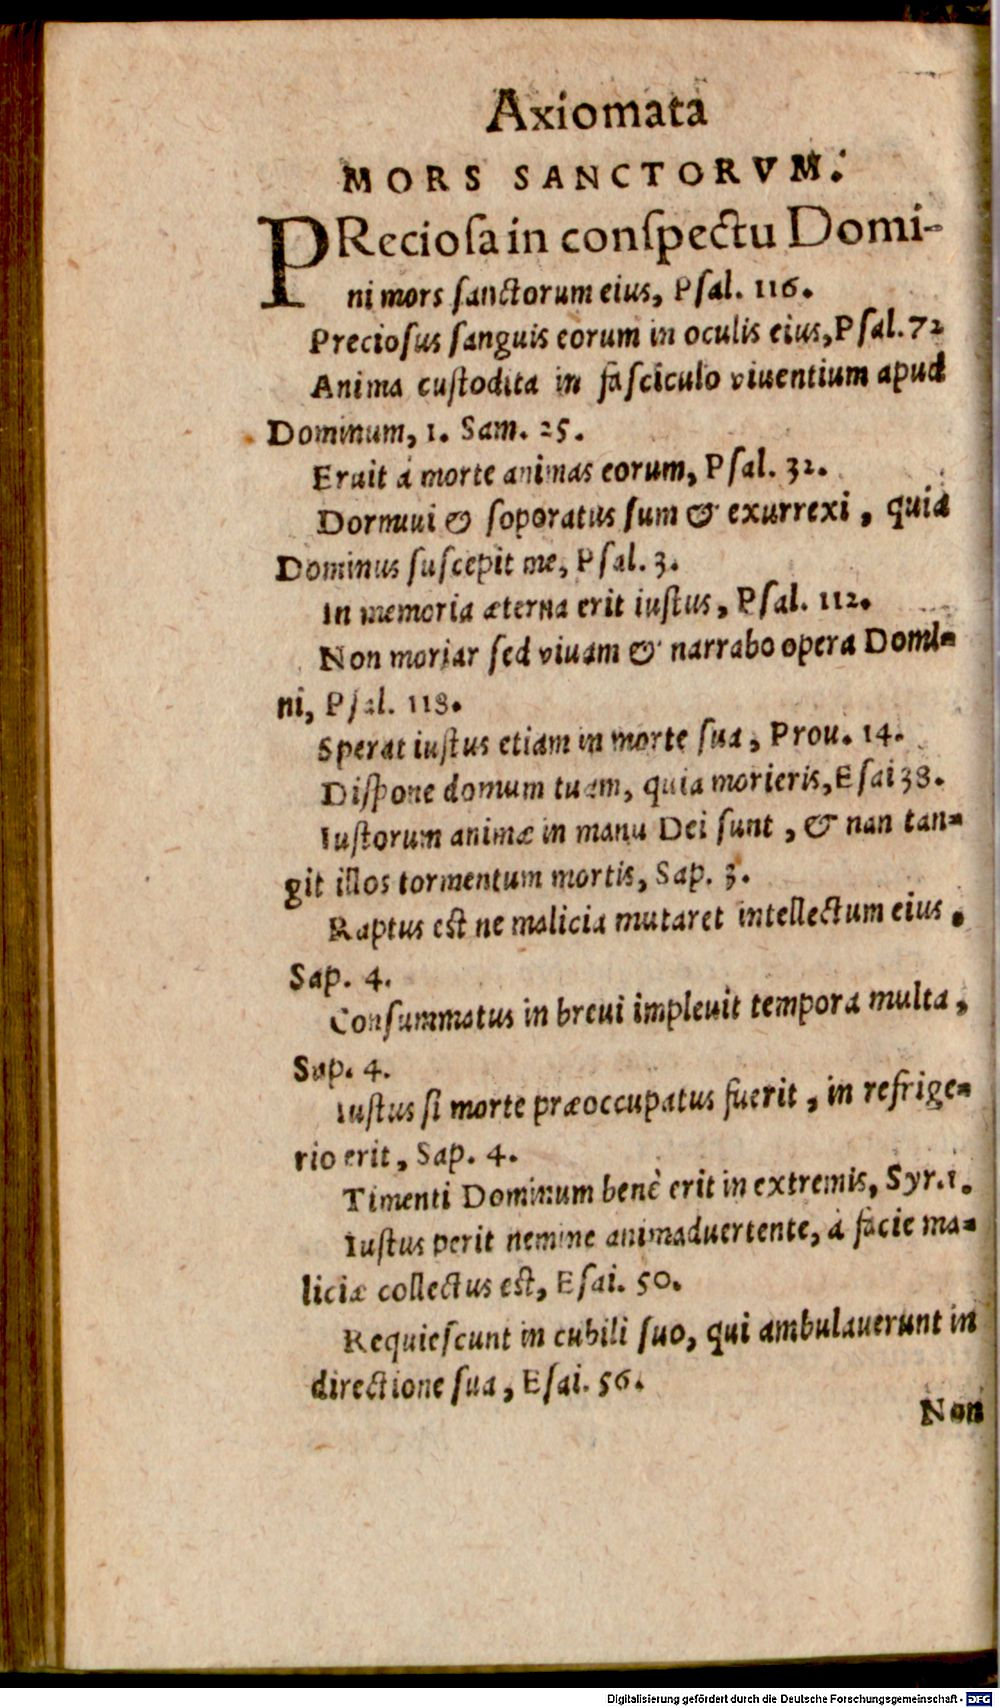 Axiomata
MORS SANCTORVM.
PReciosa in conspectu Domi-
ni mors sanctorum eius, Psal. 116.
Preciosus sanguis eorum in oculis eius, Psal. 72
Anima custodita in fasciculo viuentium apud
Dominum, 1. Sam. 25.
Eruit à morte animas eorum, Psal. 32.
Dormiui & soporatus sum & exurrexi, quia
Dominus suscepit me, Psal. 3.
In memoria æterna erit iustus, Psal. 112.
Non moriar sed viuam & narrabo opera Domi-
ni, Psal. 118.
Sperat iustus etiam in morte sua, Prou. 14.
Dispone domum tuam, quia morieris, Esai 38.
Iustorum animæ in manu Dei sunt, & nan tan-
git illos tormentum mortis, Sap. 3.
Raptus est ne malicia mutaret intellectum eius.
Sap. 4.
Consummatus in breui impleuit tempora multa,
Sap. 4.
Iustus si morte præoccupatus fuerit, in refrige-
rio erit, Sap. 4.
Timenti Dominum benè erit in extremis, Syr. 1.
Iustus perit nemine animaduertente, à facie ma-
liciæ collectus est, Esai. 50.
Requiescunt in cubili suo, qui ambulauerunt in
directione sua, Esai. 56.
Non
Digitalisierung gefördert durch die Deutsche Forschungsgemeinschaft - DFG